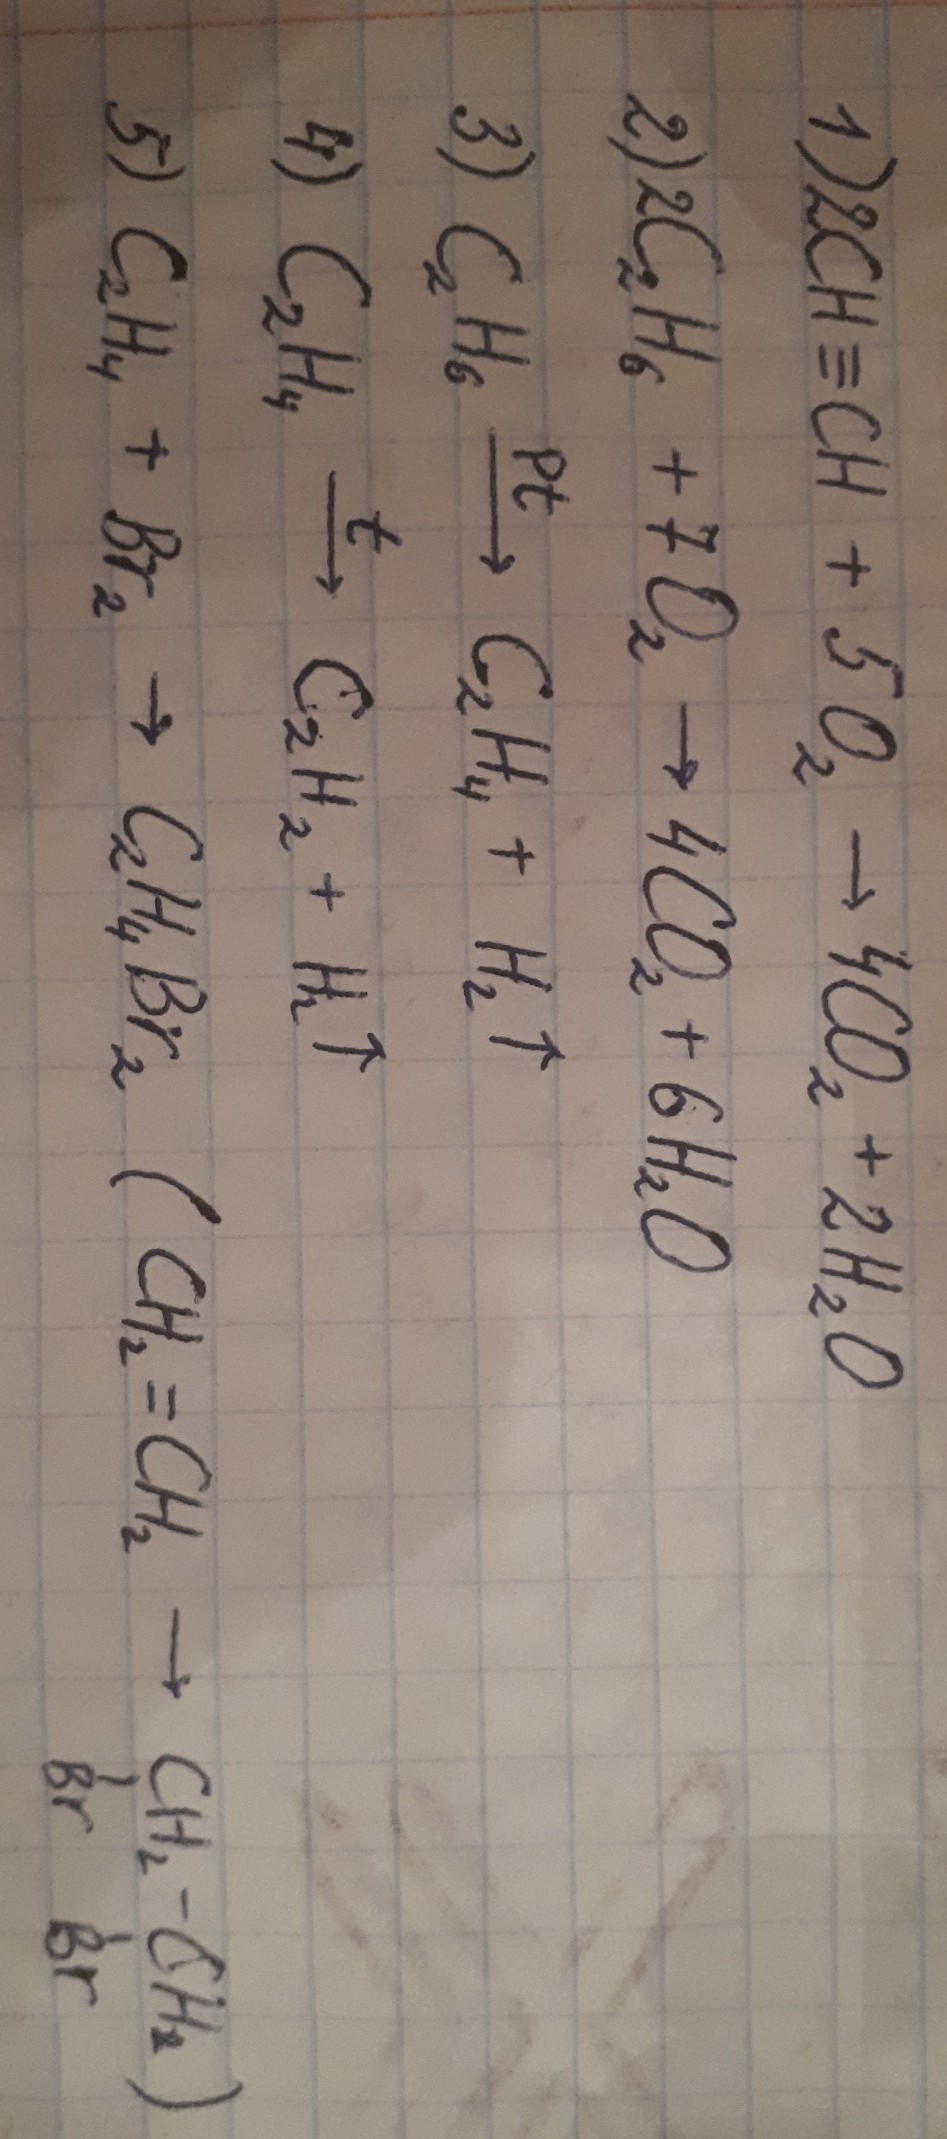 1) 2CH≡CH + 5O₂ → 4CO₂ + 2H₂O
2) 2C₂H₆ + 7O₂ → 4CO₂ + 6H₂O
3) C₂H₆ —Pt→ C₂H₄ + H₂↑
4) C₂H₄ —t→ C₂H₂ + H₂↑
5) C₂H₄ + Br₂ → C₂H₄Br₂ (CH₂=CH₂ → CH₂-CH₂)
Br Br